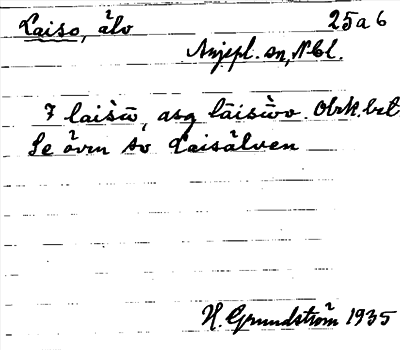 Laiso, älv 25a6
Arjepl. sn, Nbl.
laisω̄, asg lāisὼv. Obrk. bet
Se även so Laisälven
H. Grundström 1935